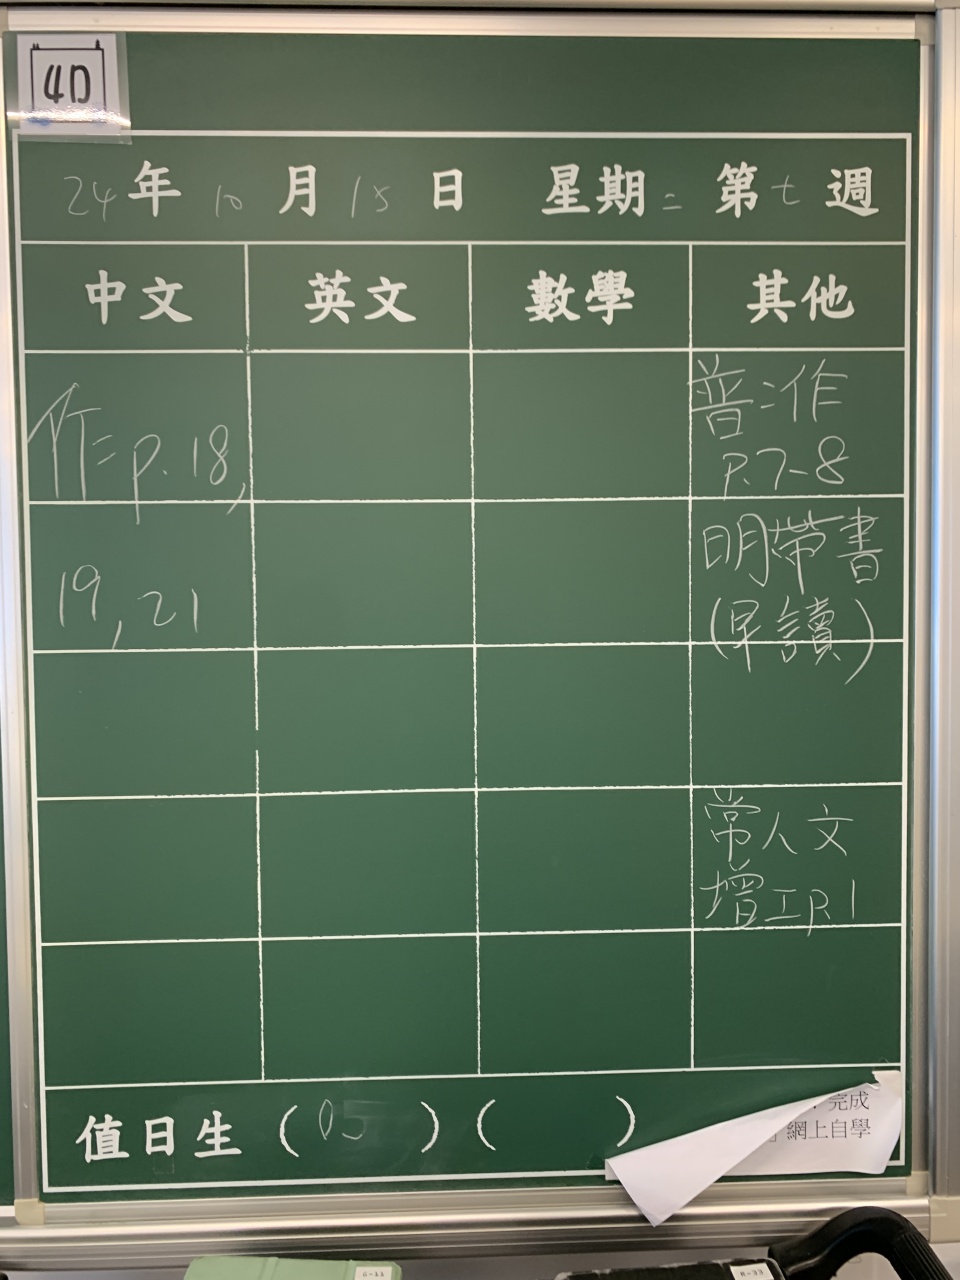 4D
24年10月15日 星期二 第七週
中文 英文 數學 其他
作=p.18,
19,21
普:作
P.7-8
明帶書
(早讀)
常人文
增工P.1
值日生 (05) ( )
完成
網上自學
6-33